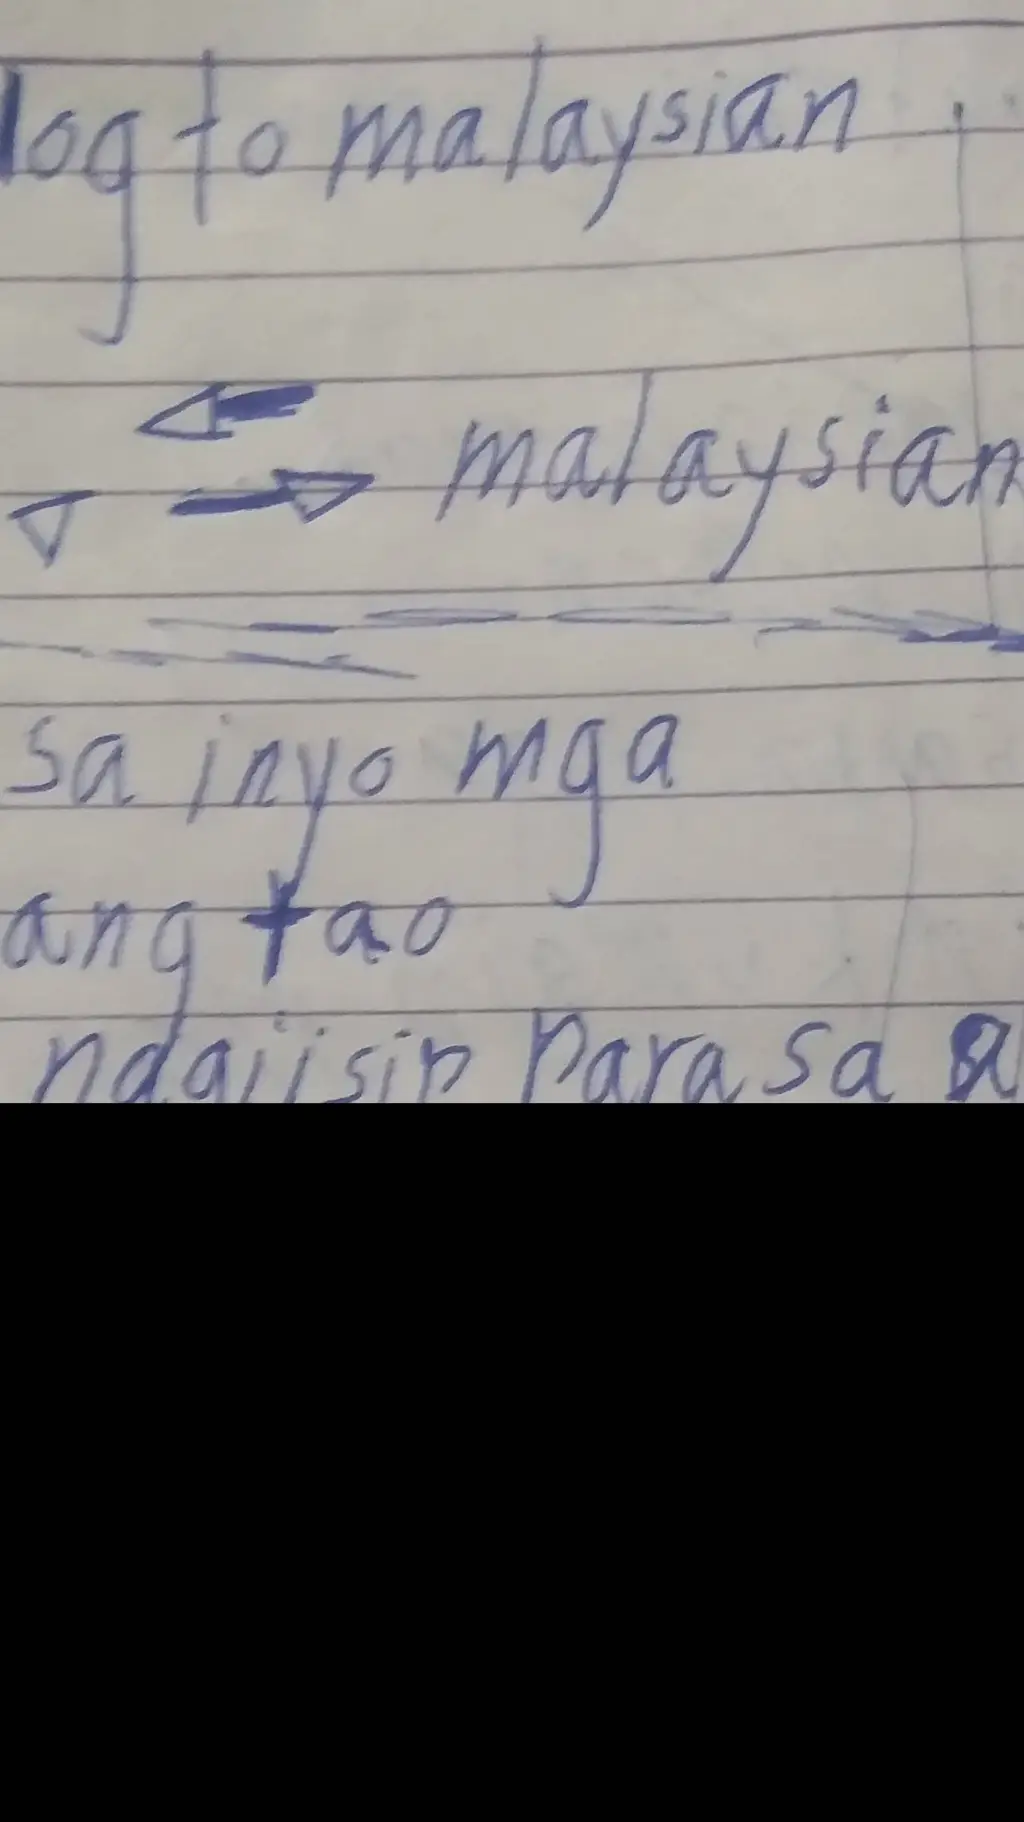 log to malaysian
malaysian
sa inyo mga
ang tao
para sa